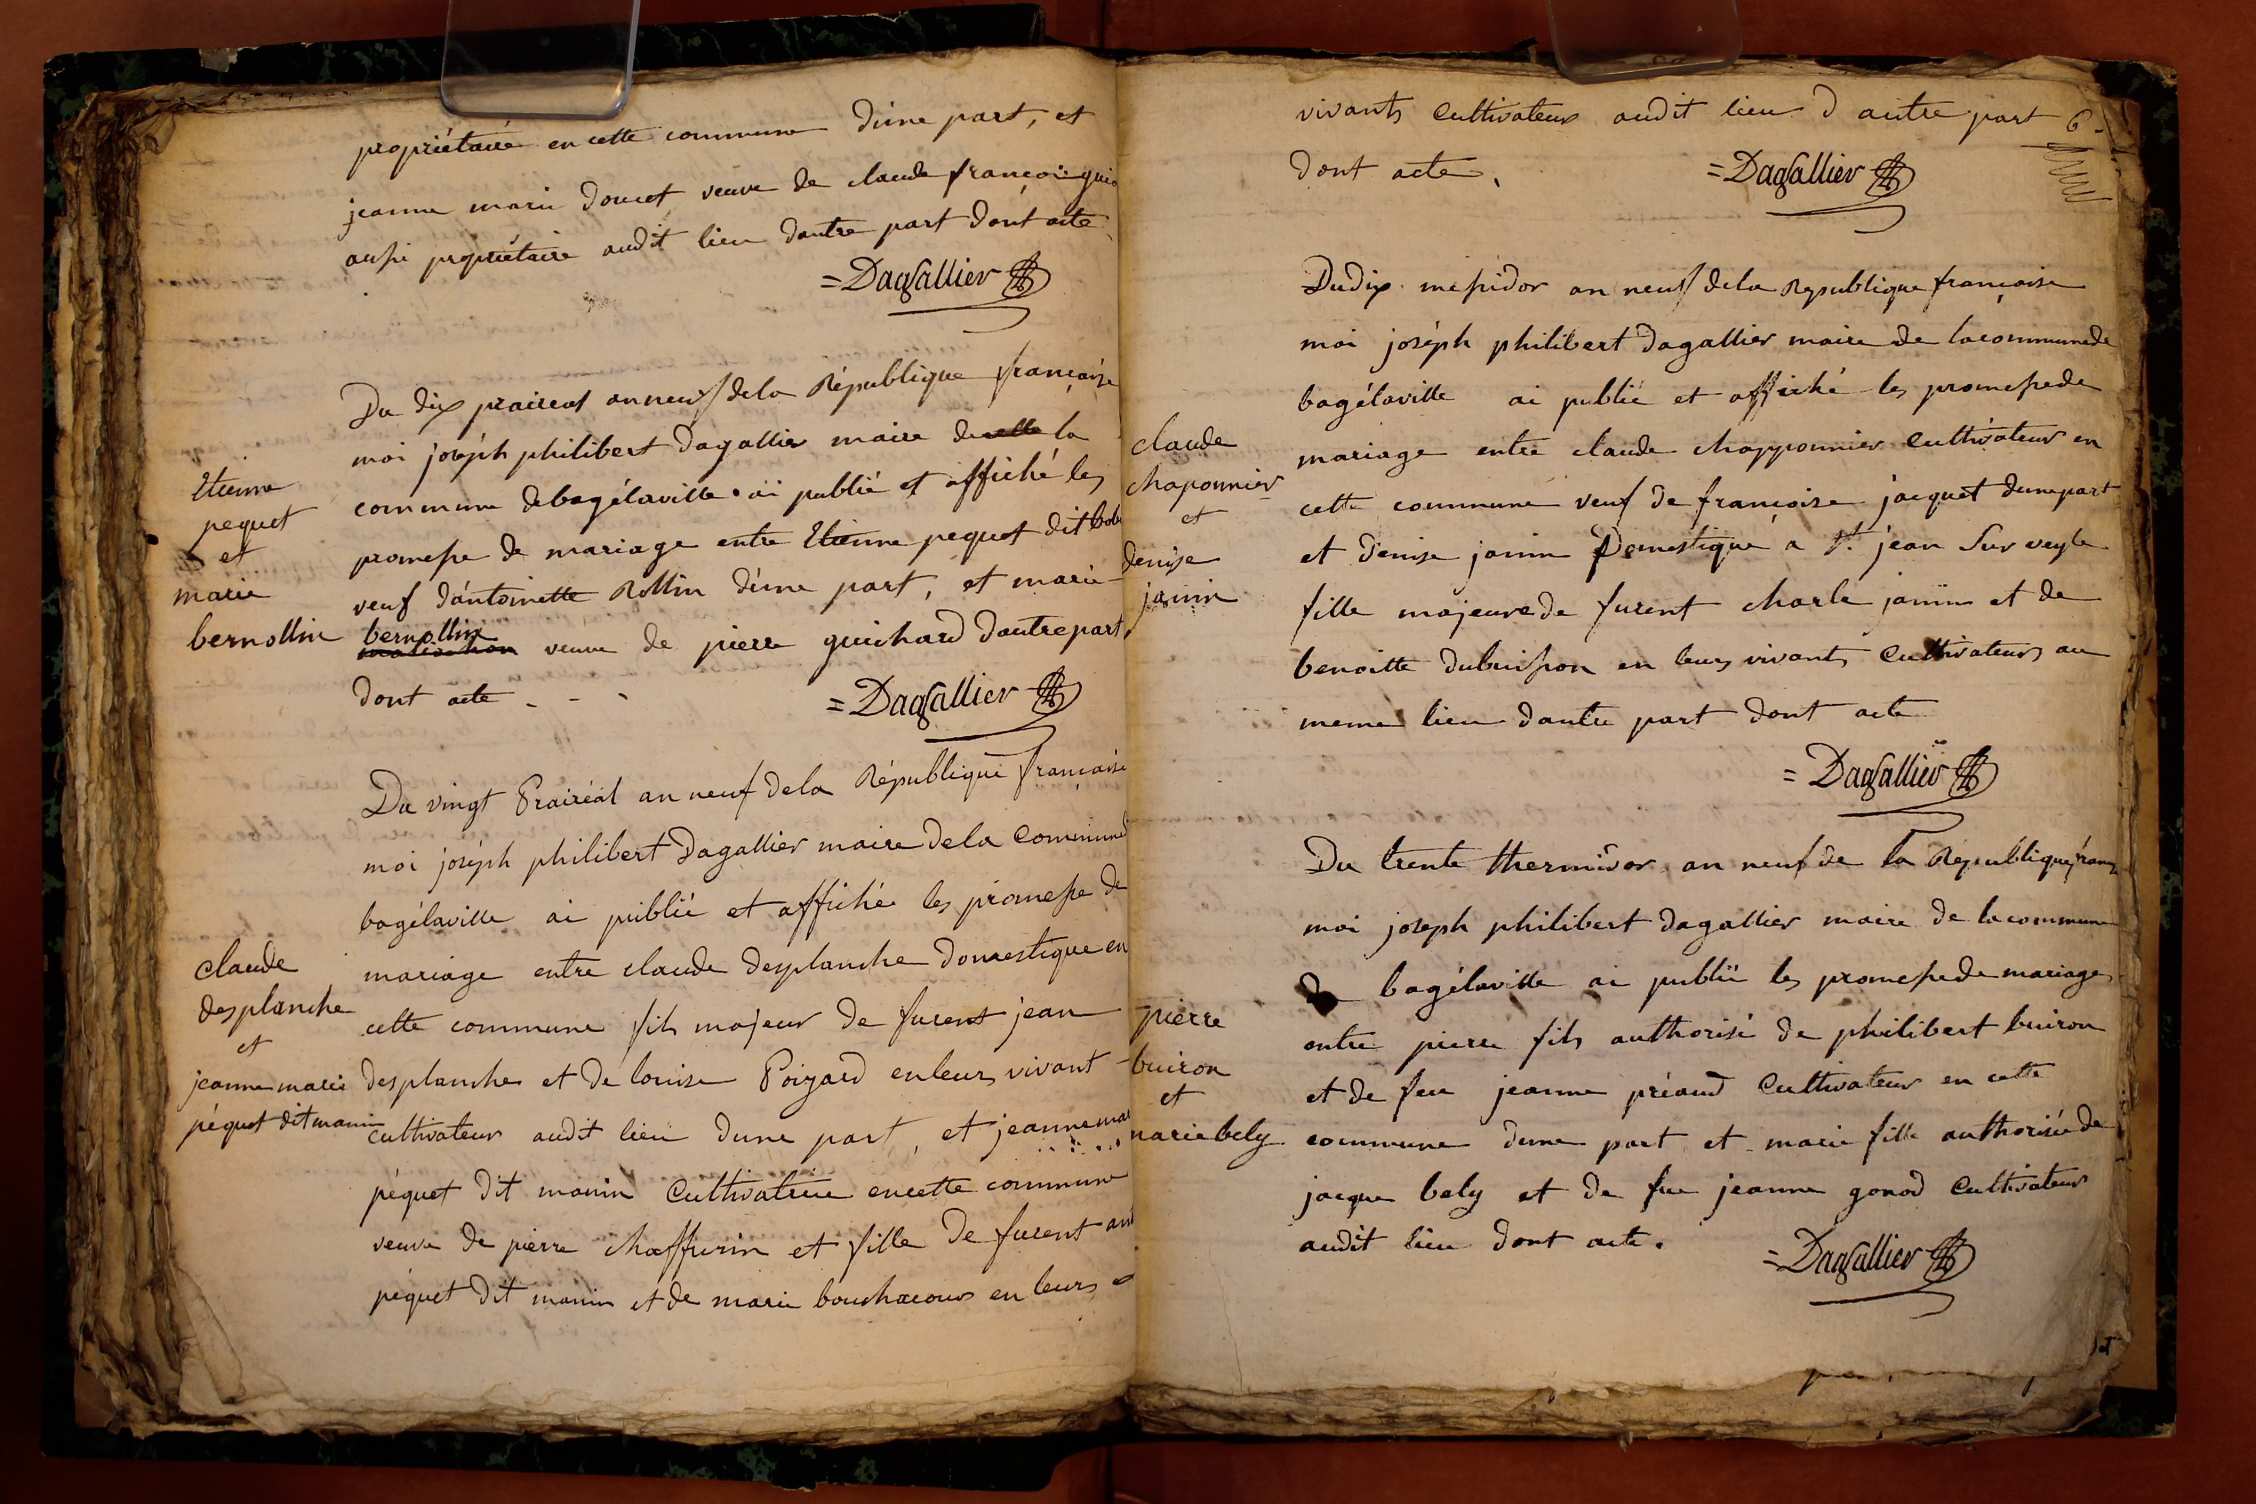 propriétaire en cette commune d'une part, et
jeanne marie Doucet veuve de claude françois
aussi propriétaire audit lieu dautre part Dont acte
=Dagallier
Etienne
pequet
et
marie
bernollin
Du dix prairéal an neuf dela République française
moi joséph philibert Dagallier maire de la
commune debagélaville ai publié et affiché les
promesse de mariage entre Etienne pequet dit
veuf d'antoinette Rollin d'une part, et marie
bernollin veuve de pierre guichard dautrepart
Dont acte - - -
=Dagallier
claude
desplanche
et
jeanne marie
péquet dit manin
Du vingt Prairéal an neuf dela République française
moi joséph philibert Dagallier maire dela Commune
bagélaville ai publié et affiché les promesse de
mariage entre claude desplanche Domestique en
cette commune fils majeur de furent jean
desplanche et de louise Poizard enleurs vivant
cultivateur audit lieu dune part, et jeanne
péquet dit manin Cultivatrice encette commune
veuve de pierre chaffurin et fille de furent
péquet dit manin et de marie bouchacour en leurs
vivants Cultivateur audit lieu d autre part
Dont acte.
6
=Dagallier
claude
chaponnier
et
denise
janin
Dudix messidor an neuf dela République française
moi joséph philibert dagallier maire de lacommunede
bagélaville ai publié et affiché les promessede
mariage entre claude chapponnier Cultivateur en
cette commune veuf de françoise jacquet dunepart
et denise janin Domestique a St jean Sur veyle
fille majeurede furent charle janin et de
benoitte dubuisson en leurs vivants Cultivateurs au
meme lieu dautre part Dont acte
=Dagallier
pierre
buiron
et
marie bely
Du trente thermidor an neuf de la République
moi joseph philibert dagallier maire de lacommune
de bagélaville ai publié les promessede mariage
entre pierre fils authorisé de philibert buiron
et de feu jeanne préaud Cultivateur en cette
commune dune part et marie fille authorisée de
jacque bely et de feu jeanne gonod Cultivateur
audit lieu dont acte.
=Dagallier